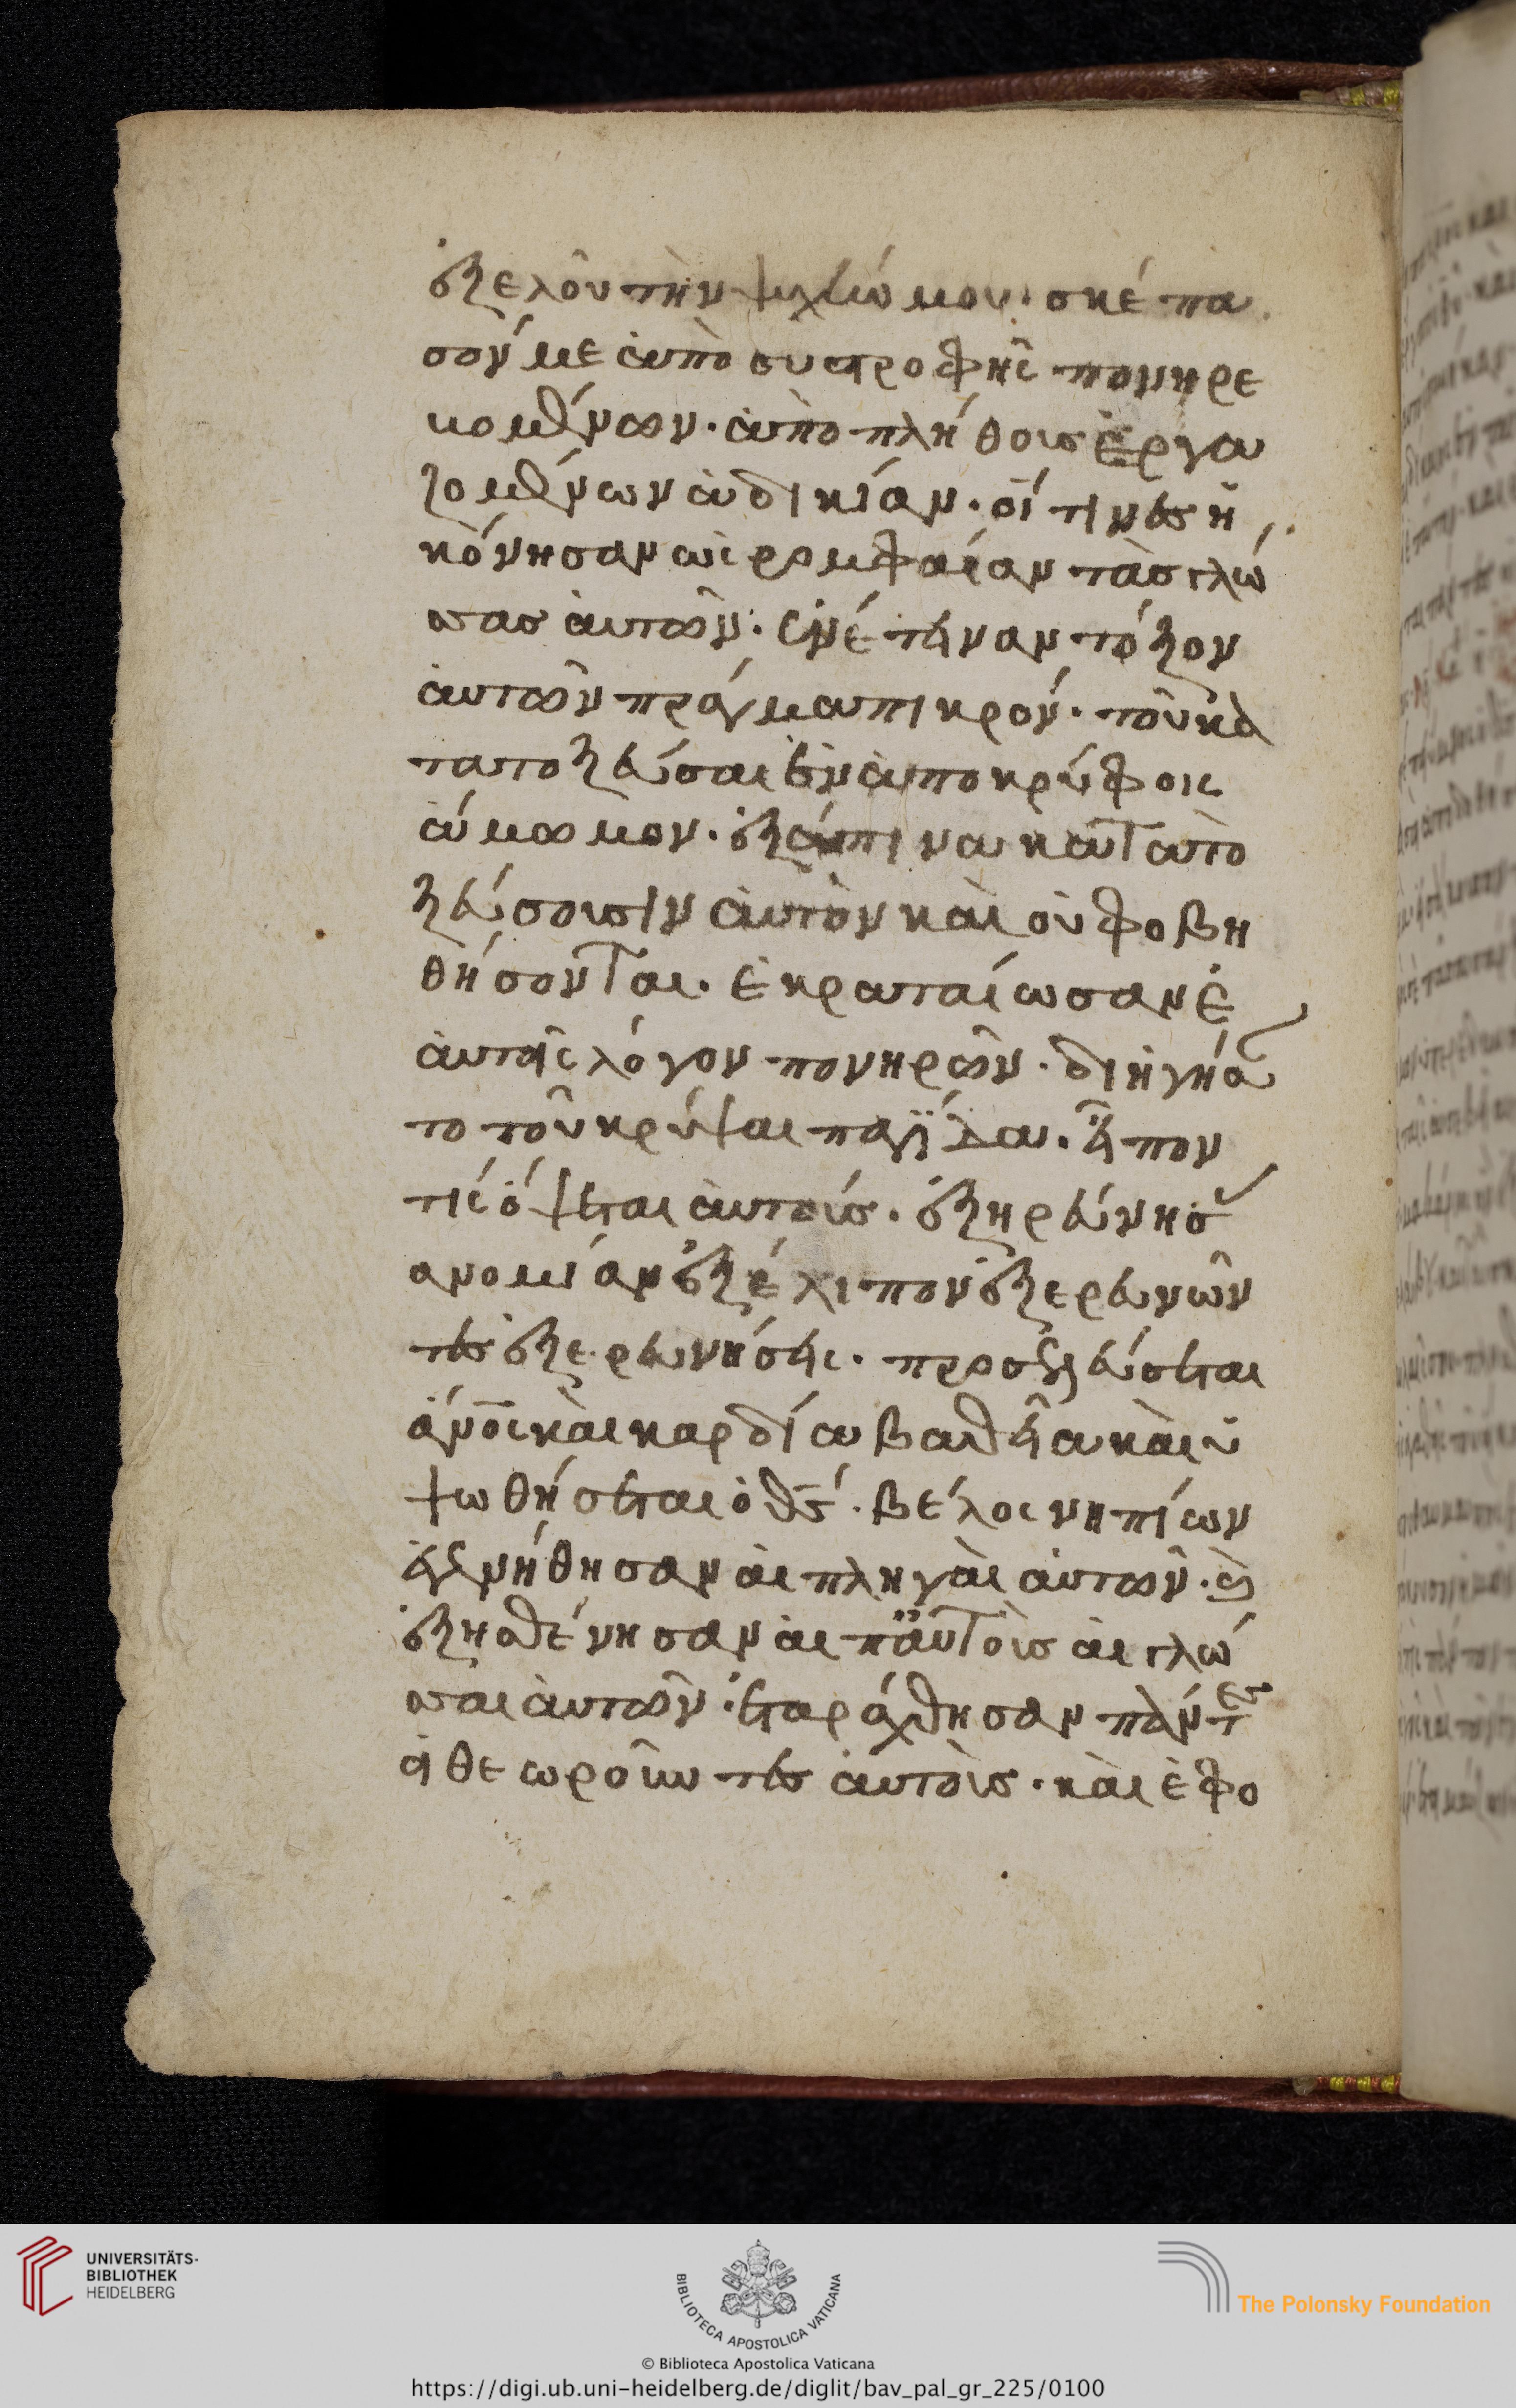 ἐξελοῦ τὴν ψυχήν μου. σκέπα
σόν με ἀπὸ συστροφῆς πονηρε
υομένων. ἀπὸ πλήθους ἐργα
ζομένων ἀδικίαν. οἵτινες ἠ
κόνησαν ὡς ρομφαίαν τὰς γλώ
σσας αὐτῶν. ἐνέτειναν τόξον
αὐτῶν πράγμα πικρόν. τοῦ κα
τατοξεύσαι ἐν ἀποκρύφοις
ἄμωμον. ἐξάπινα κατατο
ξεύσουσιν αὐτὸν καὶ οὐ φοβη
θήσονται. ἐκραταίωσαν ἐ
αυτοῖς λόγον πονηρῶν. διηγήσα
το τοῦ κρύψαι παγίδα. εἶπον
τίς ὄψεται αὐτούς. ἐξηρεύνησ
ανομίαν ἐξέλιπον ἐξερευνῶν
τες ἐξερευνήσεις. προσελεύσεται
ἄνος καὶ καρδία βαθεῖα καὶ ὑ
ψωθήσεται ὁ θς. βέλος νηπίων
ἐγενήθησαν αἱ πληγαὶ αὐτῶν. καὶ
ἐξησθένησαν ἐπ αὐτοὺς αἱ γλώ
σσαι αὐτῶν. ἐταράχθησαν πάντες
οἱ θεωροῦντες αὐτούς. καὶ ἐφο
UNIVERSITÄTS-
BIBLIOTHEK
HEIDELBERG
BIBLIOTECA APOSTOLICA VATICANA
The Polonsky Foundation
© Biblioteca Apostolica Vaticana
https://digi.ub.uni-heidelberg.de/diglit/bav_pal_gr_225/0100